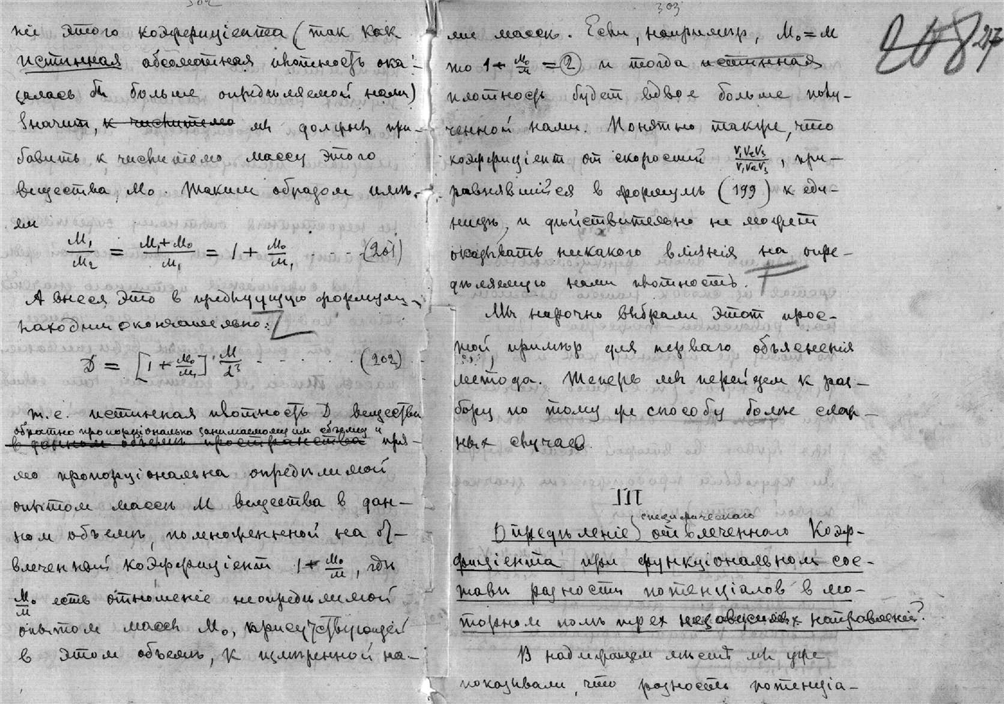 302
ніе этого коэфриціента (так как
истинная абсолютная плотность ока-
залась бы больше опредѣляемой нами)
Значит, к числителю мы должны при-
бавить к числителю массу этого
вещества, М₀. Таким образом имѣ-
ем
M₁/M₂ = (M₁+M₀)/M₁ = 1 + M₀/M₁ . . . (201)
А внеся это в предидущую формулу,
находим окончательно:
D = [1 + M₀/M₁] · M/L³ . . . . (202)
т.е. истинная плотность D вещества
обратно пропорціональна занимаемому им объему и
в данном объемѣ пространства пря-
мо пропорціональна опредѣлимой
опытом массѣ М вещества в дан-
ном объемѣ, помноженной на от-
влеченный коэфриціент 1+ M₀/M, гдѣ
M₀/M есть отношеніе неопредѣлимой
опытом массы М₀, присутствующей
в этом объемѣ, к измѣренной на-
303
268 217
ми массѣ. Если, например, М₀=М
то 1+ M₀/M = 2 и тогда истинная
плотность будет вдвое больше полу-
ченной нами. Понятно также, что
коэффиціент от скоростей V₁V₂V₃/V₁V₂V₃, при-
равнявшійся в формулѣ (199) к еди-
ницѣ, и дѣйствительно не может
оказывать никакого вліянія на опре-
дѣляемую нами плотность.
Мы нарочно выбрали этот прос-
той примѣр для перваго объясненія
метода. Теперь мы перейдем к раз-
бору по тому же способу болѣе слож-
ных случаев.
III
специфического
Опредѣленіе отвлеченного Коэф-
фиціента при функціональном сос-
таве разности потенціалов в мо-
торном полѣ трех независимых направленій?
В надлежащем мѣстѣ мы уже
показывали, что разность потенціа-